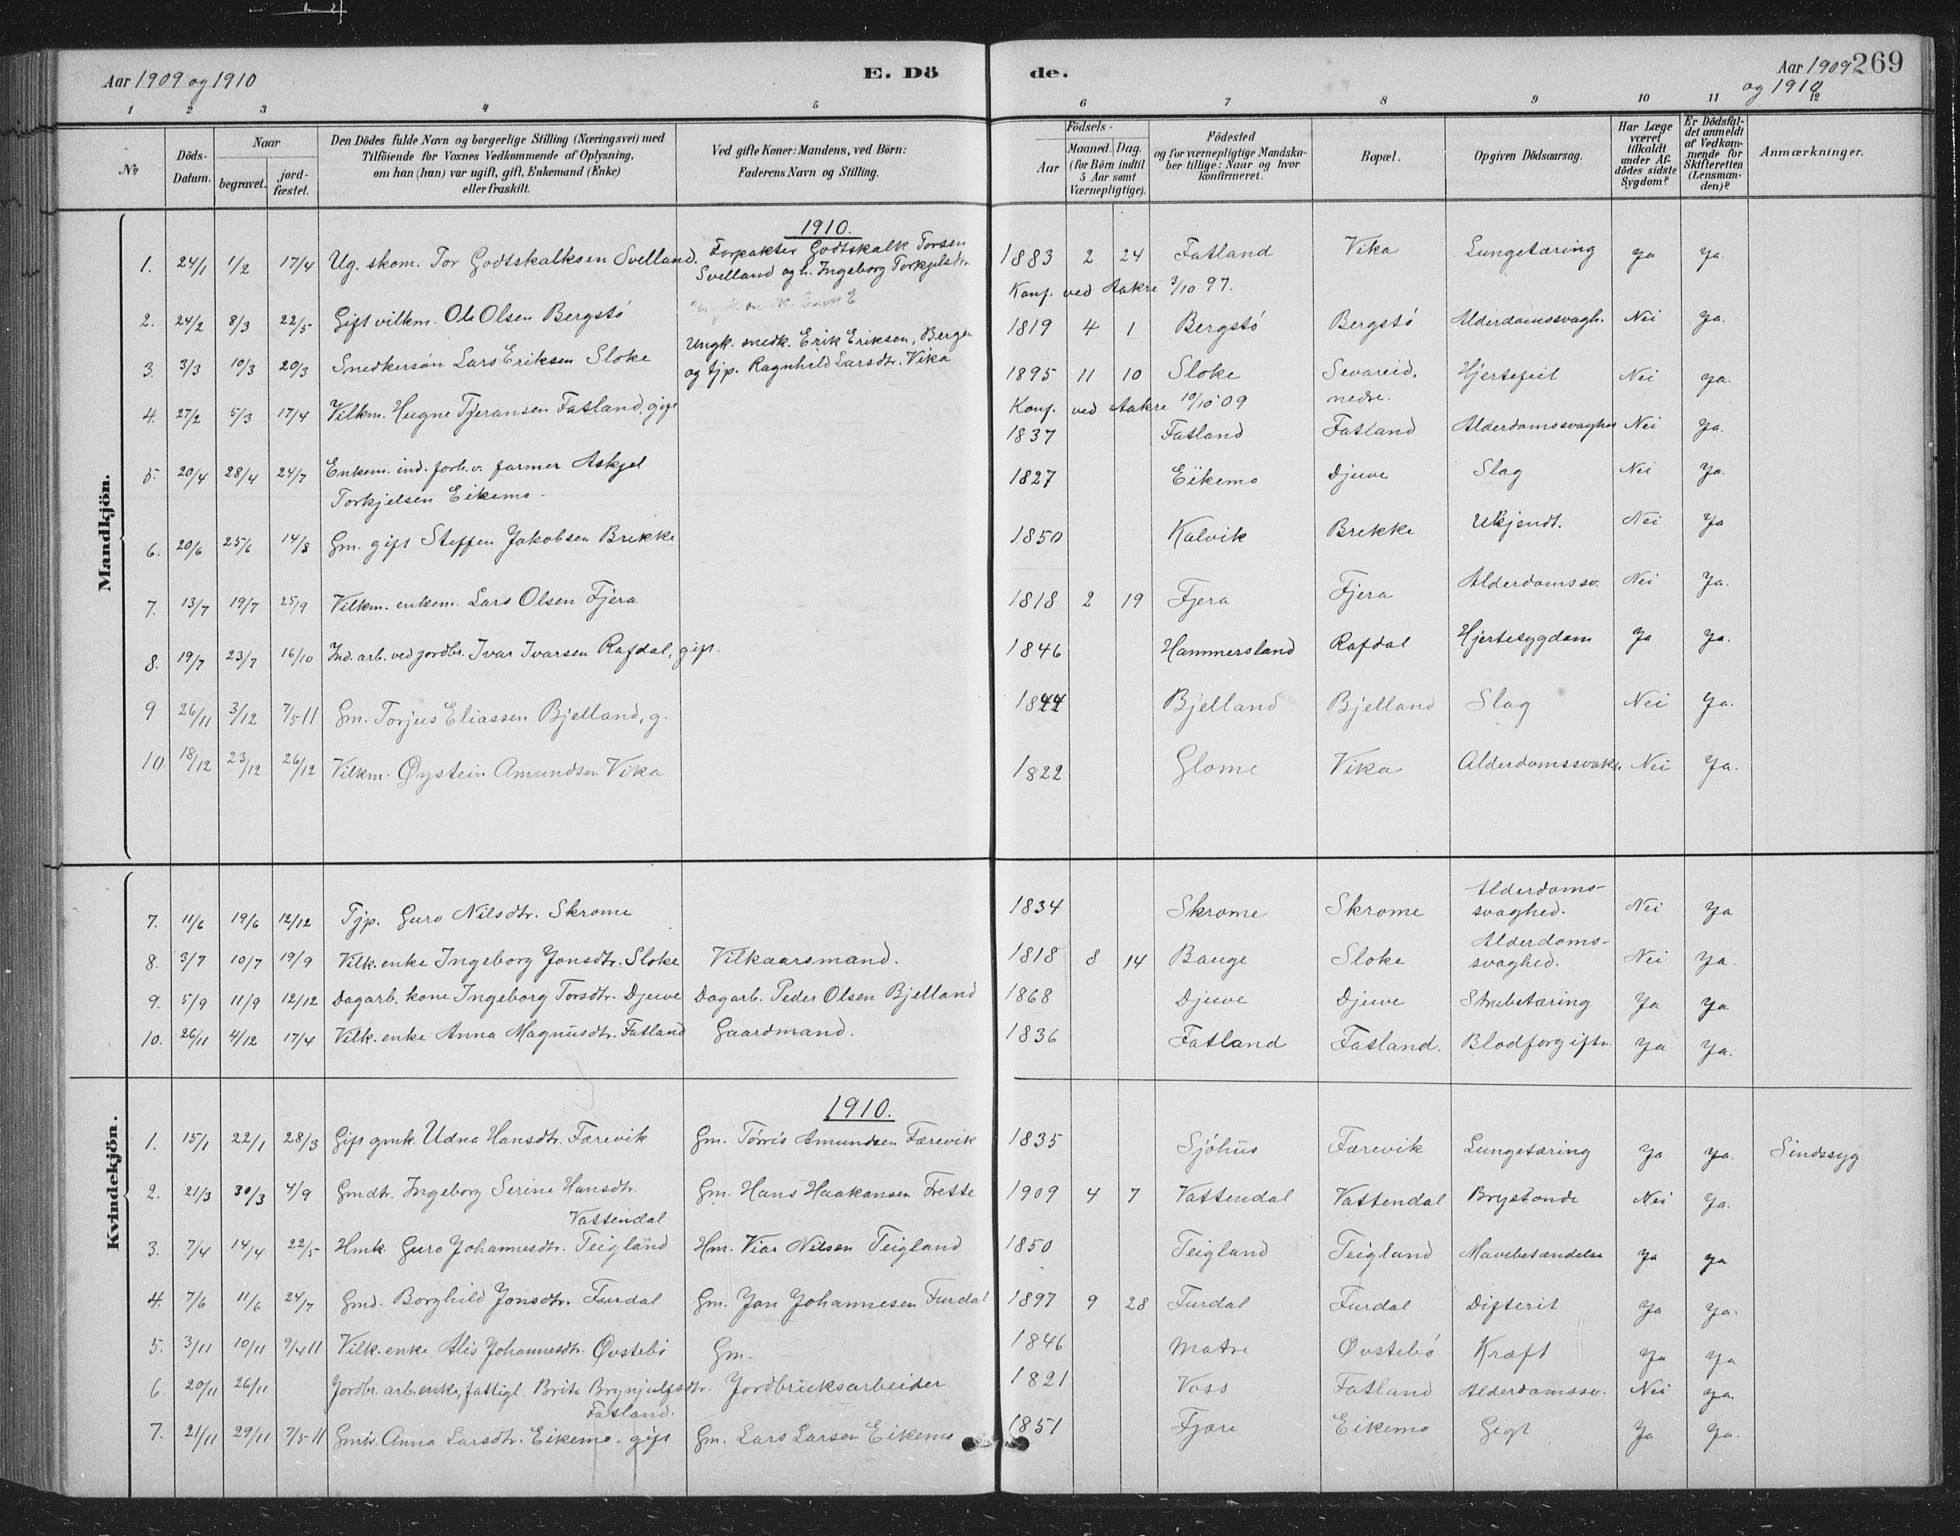 Aar 1909 og 1910
E. Dö
de.
Aar 1909 269
og 1910
1 2 3 4 5 6 7 8 9 10 11 12
No
Döds-Datum.
Naar
begravet.
jord-fæstet.
Den Dödes fulde Navn og borgerlige Stilling (Næringsvei) med
Tilföiende for Voxnes Vedkommende af Oplysning,
om han (hun) var ugift, gift, Enkemand (Enke)
eller fraskilt.
Ved gifte Koner: Mandens, ved Börn:
Faderens Navn og Stilling.
Födsels-
Aar
Maaned. Dag.
(for Börn indtil
5 Aar samt
Værnepligtige).
Födested
og for værnepligtige Mandska-
ber tillige: Naar og hvor
konfirmeret.
Bopæl.
Opgiven Dödsaarsag.
Har Læge
været
tilkaldt
under Af-
dödes sidste
Sygdom?
Er Dödsfal-
det anmeldt
af Vedkom-
mende for
Skifteretten
(Lensman-
den)?
Anmærkninger.
Mandkjön.
1910.
1. 24/1 1/2 17/4 Ug. skom. Tor Godtskalksen Svelland. Forpakter Godtskalk Torsen 1883 2 24 Fatland Vika Lungetæring Ja Ja.
Svelland og h. Ingeborg Torkjelsdtr.
Konf. ved Aakre 3/10 97.
2. 24/2 8/3 22/5 Gift vilkm. Ole Olsen Bergstø 1819 4 1 Bergstø Bergstø Alderdomssvagh. Nei Ja.
Ungk. snedk. Erik Eriksen, Bergen
3. 3/3 10/3 20/3 Snedkersøn Lars Eriksen Sloke og tjp. Ragnhild Larsdtr. Vika 1895 11 10 Sloke Sevareid, Hjertefeil Nei Ja.
Konf. ved Aakre 10/10 '09 nedre.
4. 27/2 5/3 17/4 Vilkm. Hugne Tjeransen Fatland, gift 1837 Fatland Fatland Alderdomssvaghed Nei Ja.
5. 20/4 28/4 24/7 Enkem. ind. forh.v. farmer Askjel 1827 Eikemo Djuve Slag Nei Ja.
Torkjelsen Eikemo.
6. 20/6 25/6 14/8 Gm. gift Steffen Jakobsen Brekke 1850 Kalvik Brekke Ukjendt. Nei Ja
7. 13/7 19/7 25/9 Vilkm. enkem. Lars Olsen Fjera 1818 2 19 Fjera Fjera Alderdomssv. Nei Ja.
8. 19/7 23/7 16/10 Ind. arb. ved jordbr. Ivar Ivarsen Rafdal, gift. 1846 Hammersland Rafdal Hjertesygdom Ja Ja.
9 26/11 3/12 7/5 11 Gm. Torjus Eliassen Bjelland, g. 1844 Bjelland Bjelland Slag Nei Ja.
10. 18/12 23/12 26/12 Vilkm. Øystein Amundsen Vika 1822 Glome Vika Alderdomssvakh. Nei Ja.
Kvindekjön.
7. 11/6 19/6 12/12 Tjp. Guro Nilsdtr. Skrome 1834 Skrome Skrome Alderdoms-
svaghed. Nei Ja
8. 3/7 10/7 19/9 Vilk. enke Ingeborg Jonsdtr. Sloke Vilkaarsmand. 1818 8 14 Bauge Sloke Alderdoms-
svaghed. Nei Ja.
9. 5/9 11/9 12/12 Dagarb. kone Ingeborg Torsdtr. Djuve Dagarb. Peder Olsen Bjelland 1868 Djuve Djuve Strubetæring Ja Ja
10. 26/11 4/12 17/4 Vilk. enke Anna Magnusdtr. Fatland Gaardmand. 1836 Fatland Fatland. Blodforgiftn. Ja Ja.
1910.
1. 15/1 22/1 28/3 Gift gmk. Udna Hansdtr. Færevik Gm. Tørris Amundsen Færevik 1835 Sjöhus Færevik Lungetæring Ja Ja. Sindssyg
2. 21/3 30/3 4/9 Gmdtr. Ingeborg Serine Hansdtr. Gm. Hans Haakonsen Frette 1909 4 7 Vattendal Vattendal Brystonde Nei Ja.
Vattendal
3. 7/4 14/4 22/5 Hmk. Guro Johannesdtr. Teigland Hm. Viar Nilsen Teigland 1850 Teigland Teigland Mavebetændelse Ja Ja
4. 7/6 11/6 24/7 Gmd. Borghild Jonsdtr. Furdal Gm. Jon Johannesen Furdal 1897 9 28 Furdal Furdal Difterit Ja Ja.
5. 3/11 10/11 9/4 11 Vilk. enke Alis Johannesdtr. Øvstebø Gm. 1846 Matre Øvstebø Kræft Ja Ja
6. 20/11 26/11 Jordbr. arb. enke, fattigl. Brita Brynjulfsdtr. Jordbruksarbeider 1821 Voss Fatland Alderdomssv. Nei Ja.
Fatland.
7. 21/11 29/11 7/5 11 Gmk. Anna Larsdtr. Eikemo. gift Gm. Lars Larsen Eikemo 1851 Fjære Eikemo Gigt Ja Ja.